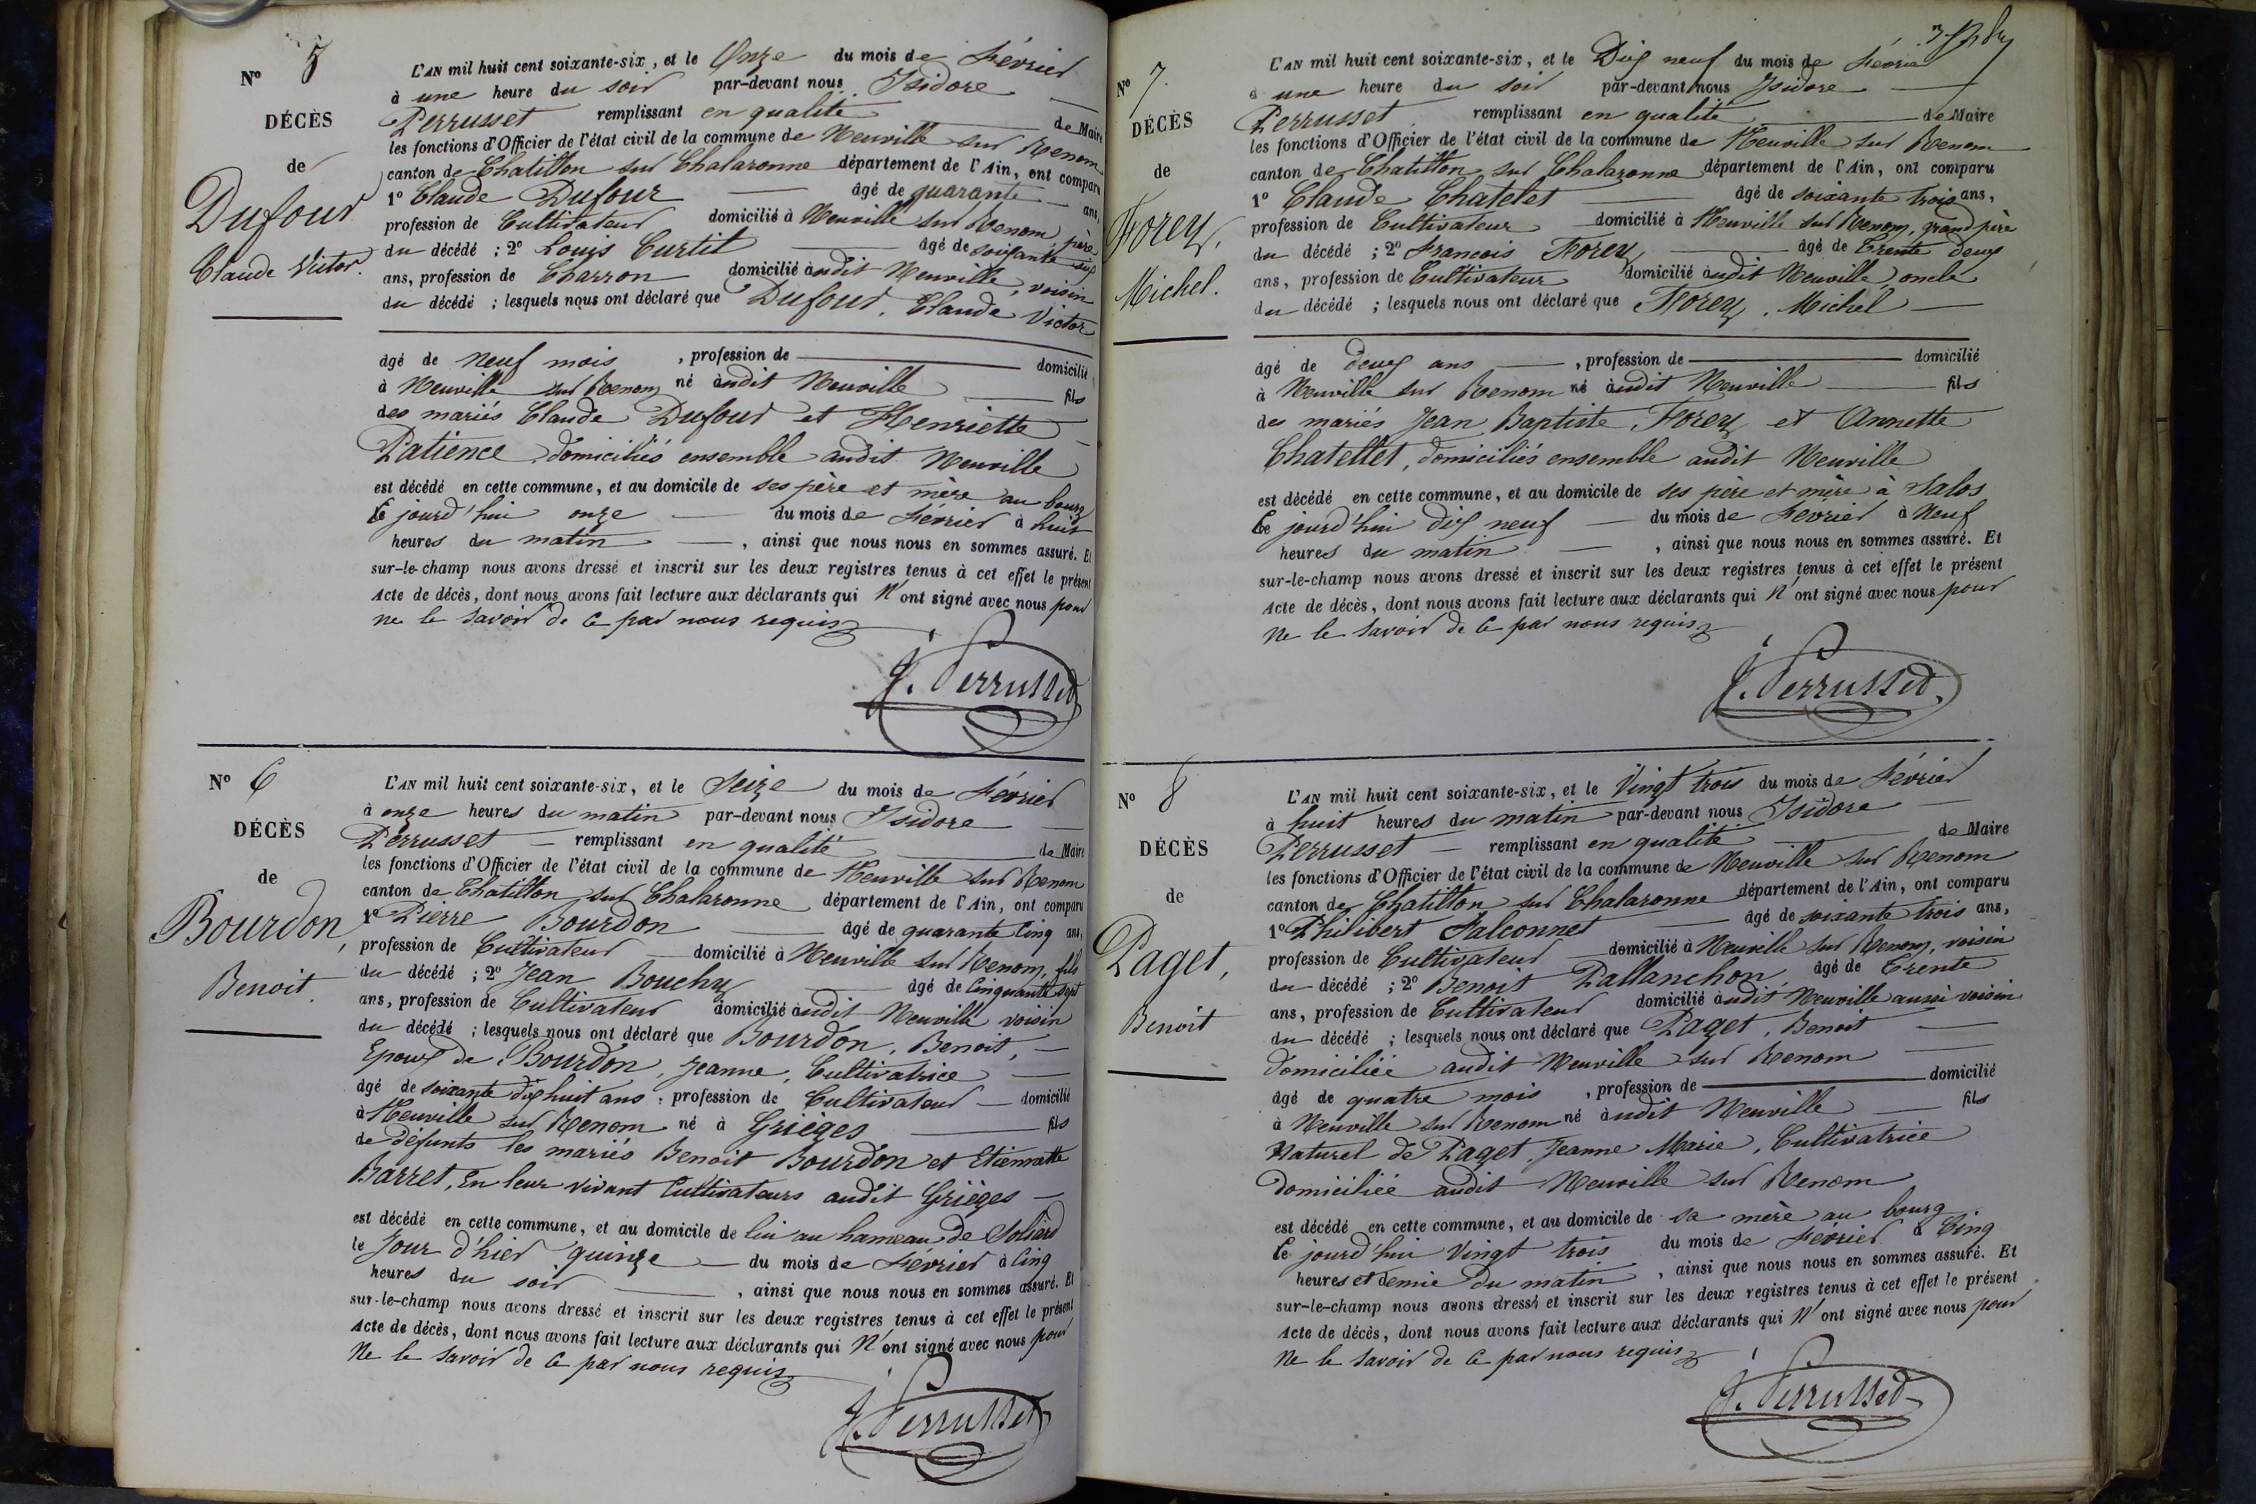 Nº 5
DÉCÈS
de
Dufour
Claude Victor.
L'AN mil huit cent soixante-six, et le Onze du mois de Février
à une heure du soir par-devant nous Isidore
Perrusset remplissant en qualité de Maire
les fonctions d'Officier de l'état civil de la commune de Neuville sur Renom
canton de Chatillon sur Chalaronne département de l'Ain, ont comparu
1º Claude Dufour âgé de quarante ans,
profession de Cultivateur domicilié à Neuville sur Renom, père
du décédé ; 2º Louis Curtil âgé de soixante six
ans, profession de Charron domicilié audit Neuville, voisin
du décédé ; lesquels nous ont déclaré que Dufour, Claude Victor
âgé de neuf mois , profession de domicilié
à Neuville sur Renom né audit Neuville fils
des mariés Claude Dufour et Henriette
Patience, domiciliés ensemble audit Neuville
est décédé en cette commune, et au domicile de ses père et mère au bourg
le jourd'hui onze du mois de Février à huit
heures du matin , ainsi que nous nous en sommes assuré. Et
sur-le-champ nous avons dressé et inscrit sur les deux registres tenus à cet effet le présent
Acte de décès, dont nous avons fait lecture aux déclarants qui N'ont signé avec nous pour
ne le savoir de ce par nous requis
J. Perrusset
Nº 6
DÉCÈS
de
Bourdon,
Benoit.
L'AN mil huit cent soixante-six, et le Seize du mois de Février
à onze heures du matin par-devant nous Isidore
Perrusset remplissant en qualité de Maire
les fonctions d'Officier de l'état civil de la commune de Neuville sur Renom
canton de Chatillon sur Chalaronne département de l'Ain, ont comparu
1º Pierre Bourdon âgé de quarante Cinq ans,
profession de Cultivateur domicilié à Neuville sur Renom, fils
du décédé ; 2º Jean Bouchy âgé de Cinquante sept
ans, profession de Cultivateur domicilié audit Neuville voisin
du décédé ; lesquels nous ont déclaré que Bourdon, Benoit,
Epoux de Bourdon, Jeanne, Cultivatrice
âgé de soixante dix huit ans, profession de Cultivateur domicilié
à Neuville sur Renom né à Grièges fils
de défunts les mariés Benoit Bourdon et Etiennette
Barret, En leur vivant Cultivateurs audit Grièges
est décédé en cette commune, et au domicile de lui au hameau de Soliard
le Jour d'hier quinze du mois de Février à Cinq
heures du soir , ainsi que nous nous en sommes assuré. Et
sur-le-champ nous avons dressé et inscrit sur les deux registres tenus à cet effet le présent
Acte de décès, dont nous avons fait lecture aux déclarants qui N'ont signé avec nous pour
Ne le savoir de ce par nous requis
J. Perrusset
Nº 7.
DÉCÈS
de
Forey,
Michel.
L'AN mil huit cent soixante-six, et le Dix neuf du mois de Février
à une heure du soir par-devant nous Isidore
Perrusset remplissant en qualité de Maire
les fonctions d'Officier de l'état civil de la commune de Neuville sur Renom
canton de Chatillon sur Chalaronne département de l'Ain, ont comparu
1º Claude Chatelet âgé de soixante trois ans,
profession de Cultivateur domicilié à Neuville sur Renom, grand père
du décédé ; 2º Francois Forey âgé de Trente Deux
ans, profession de Cultivateur domicilié audit Neuville, oncle
du décédé ; lesquels nous ont déclaré que Forey, Michel
âgé de deux ans , profession de domicilié
à Neuville sur Renom né audit Neuville fils
des mariés Jean Baptiste Forey et Annette
Chatellet, domiciliés ensemble audit Neuville
est décédé en cette commune, et au domicile de ses père et mère à Salos
le jourd'hui dix neuf du mois de Février à Neuf
heures du matin , ainsi que nous nous en sommes assuré. Et
sur-le-champ nous avons dressé et inscrit sur les deux registres tenus à cet effet le présent
Acte de décès, dont nous avons fait lecture aux déclarants qui N'ont signé avec nous pour
Ne le savoir de ce par nous requis
J. Perrusset.
Nº 8
DÉCÈS
de
Paget,
Benoit
L'AN mil huit cent soixante-six, et le Vingt trois du mois de Février
à huit heures du matin par-devant nous Isidore
Perrusset remplissant en qualité de Maire
les fonctions d'Officier de l'état civil de la commune de Neuville sur Renom
canton de Chatillon sur Chalaronne département de l'Ain, ont comparu
1º Philibert Falconnet âgé de soixante trois ans,
profession de Cultivateur domicilié à Neuville sur Renom, voisin
du décédé ; 2º Benoit Pallanchon âgé de Trente
ans, profession de Cultivateur domicilié audit Neuville aussi voisin
du décédé ; lesquels nous ont déclaré que Paget, Benoit
domiciliée audit Neuville sur Renom
âgé de quatre mois , profession de domicilié
à Neuville sur Renom né audit Neuville fils
Naturel de Paget, Jeanne Marie, Cultivatrice
domiciliée audit Neuville sur Renom
est décédé en cette commune, et au domicile de sa mère au bourg
le jourd'hui Vingt trois du mois de Février à Cinq
heures et demie du matin , ainsi que nous nous en sommes assuré. Et
sur-le-champ nous avons dressé et inscrit sur les deux registres tenus à cet effet le présent
Acte de décès, dont nous avons fait lecture aux déclarants qui N'ont signé avec nous pour
Ne le savoir de ce par nous requis
J. Perrusset